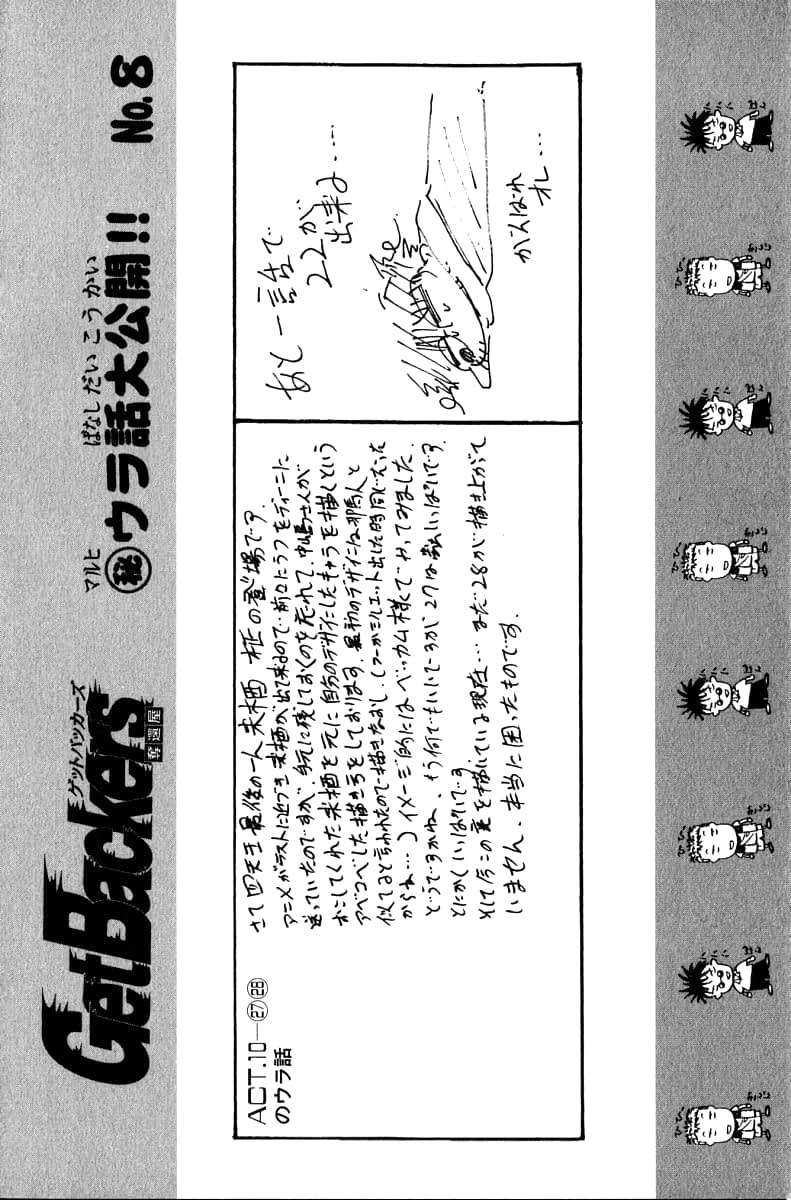 GetBackers
ゲットバッカーズ
奪還屋
マルヒ ばなしだいこうかい
㊙ウラ話大公開!! No.8
ACT.10—㉗㉘
のウラ話
さて四天王最後の一人来栖 柾の登場です.
アニメがラストに近づき来栖が出て来るので、前立にラフをディーンに
送っていたのですが、手元に残しておくのを忘れて、中嶋さんが
おこしてくれた来栖を元に自分のデザインしたキャラを描くという
アベコベした描き方をしております、最初のデザインは邪馬人と
似てると言われたので描きなおし、(つーかシルエット出した時同じだった
からね…)イメージ的にはベッカム様でやってみました.
どうですかね、もう何でもいいですが27はいっぱいです.
とにかくいっぱいです
そして今この裏を描いている現在…まだ28が描き上がって
いません、本当に困ったものです.
あと一話で
22が
出来る….
がんばれ
オレ…